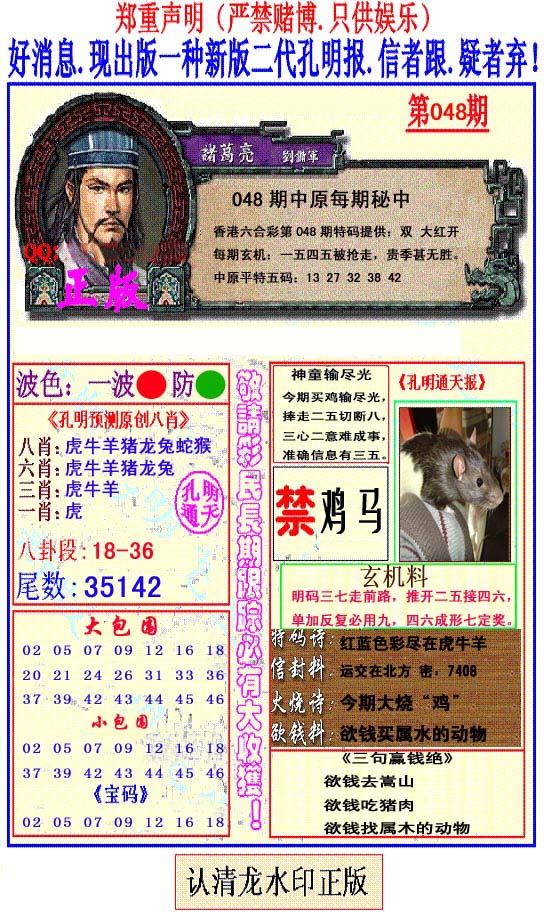 郑重声明（严禁赌博.只供娱乐）
好消息.现出版一种新版二代孔明报.信者跟.疑者弃!
第048期
諸葛亮 劉備軍
048 期中原每期秘中
香港六合彩第 048 期特码提供：双 大红开
每期玄机：一五四五被抢走，贵季甚无胜。
中原平特五码：13 27 32 38 42
QQ：
正版
波色：一波 防
《孔明预测原创八肖》
八肖:虎牛羊猪龙兔蛇猴
六肖:虎牛羊猪龙兔
三肖:虎牛羊
一肖:虎
孔明
通天
八卦段:18-36
尾数:35142
大包围
02 05 07 09 12 16 18
20 21 24 26 31 33 36
37 39 42 43 44 45 46
小包围
02 05 07 09 12 16 18
37 39 42 43 44 45 46
《宝码》
02 05 07 09 12 16 18
敬請彩民長期跟踪必有大收獲！
神童输尽光
今期买鸡输尽光，
捧走二五切断八，
三心二意难成事，
准确信息有三五。
《孔明通天报》
禁鸡马
玄机料
明码三七走前路，推开二五接四六，
单加反复必用九，四六成形七定奖。
特码诗：红蓝色彩尽在虎牛羊
信封料：运交在北方 密：7408
火烧诗：今期大烧“鸡”
欲钱料：欲钱买属水的动物
《三句赢钱绝》
欲钱去嵩山
欲钱吃猪肉
欲钱找属木的动物
认清龙水印正版